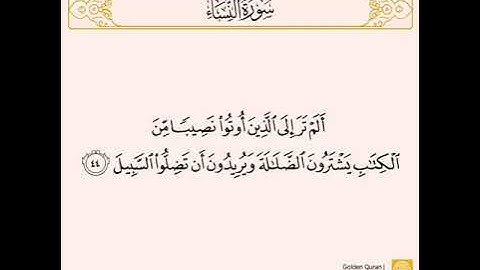 سُورَةُ النِّسَاءِ
أَلَمۡ تَرَ إِلَى ٱلَّذِينَ أُوتُواْ نَصِيبٗا مِّنَ
ٱلۡكِتَٰبِ يَشۡتَرُونَ ٱلضَّلَٰلَةَ وَيُرِيدُونَ أَن تَضِلُّواْ ٱلسَّبِيلَ ٤٤
Golden Quran |